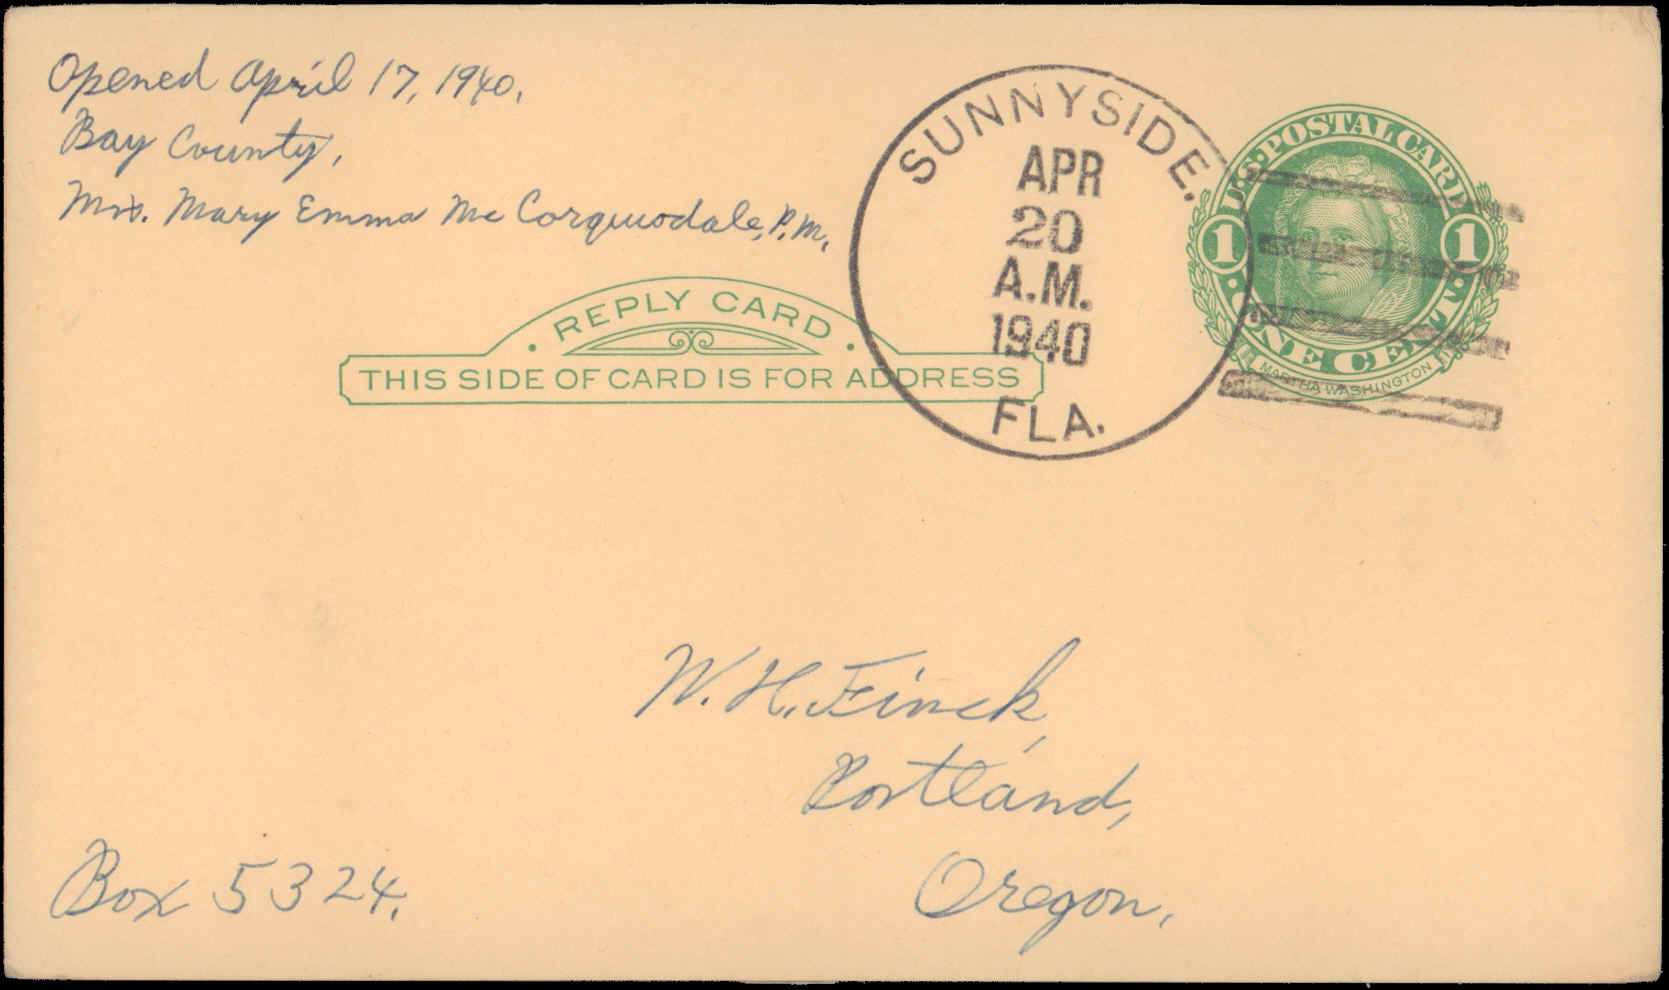 Opened April 17, 1940.
Bay County,
Mrs. Mary Emma Mc Corquodale, P.M.
SUNNYSIDE.
APR
20
A.M.
1940
FLA.
U.S. POSTAL CARD
1 1
ONE CENT
MARTHA WASHINGTON
· REPLY CARD ·
THIS SIDE OF CARD IS FOR ADDRESS
W. H. Finck,
Portland,
Oregon.
Box 5324.